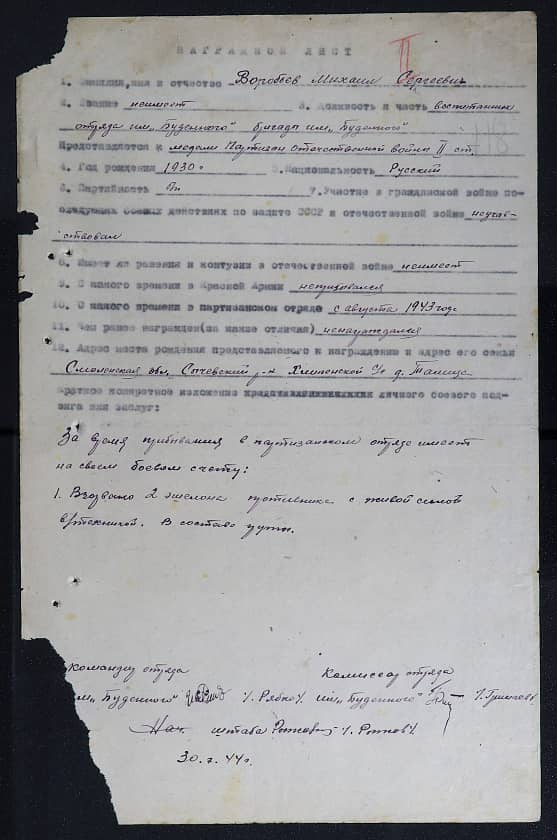 II
НАГРАДНОЙ ЛИСТ
1. Фамилия, имя и отчество Воробьев Михаил Сергеевич
2. Звание неимеет 3. Должность и часть воспитанник
отряда им „Буденного" бригады им „Буденного"
Представляется к медали Партизан Отечественной войны II ст.
4. Год рождения 1930 г 5. Национальность Русский
6. Партийность 7. Участие в гражданской войне по-
следующих боевых действиях по защите СССР и отечественной войне неучав-
ствовал
8. Имеет ли ранения и контузии в отечественной войне неимеет
9. С какого времени в Красной Армии непризывался
10. С какого времени в партизанском отряде с августа 1943 года
11. Чем ранее награжден (за какие отличия) ненаграждался
12. Адрес места рождения представляемого к награждению и адрес его семьи
Смоленская обл. Сычевский р-н с/с д.
Краткое конкретное изложение личного боевого под-
вига или заслуг:
За время прибивания в партизанском отряде имеет
на своем боевом счету:
1. Взорвано 2 эшелона противника с живой силой
и техникой. В составе группы.
Командир отряда Комиссар отряда
им „Буденного" им „Буденного"
Нач. штаба
44 г.